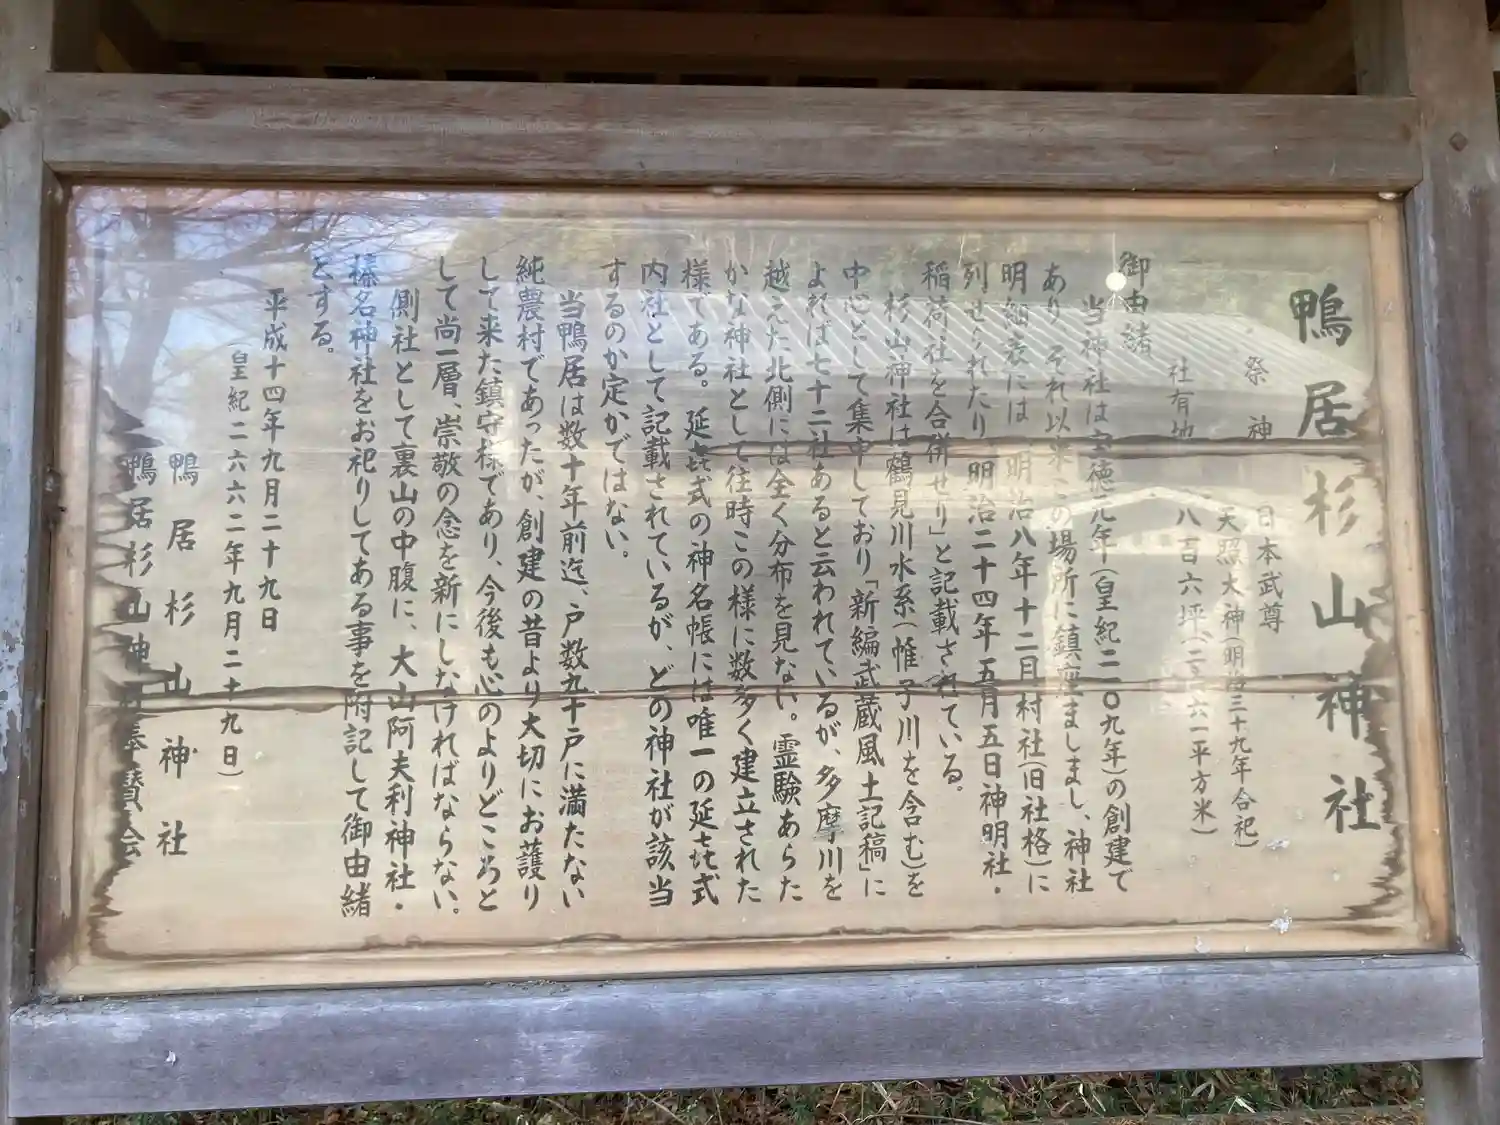 鴨居杉山神社
祭神 日本武尊
天照大神(明治三十九年合祀)
社有地 八百六坪(二六六一平方米)
御由緒
当神社は宝徳元年(皇紀二一〇九年)の創建で
あり それ以来この場所に鎮座ましまし、神社
明細表には「明治八年十二月村社(旧社格)に
列せられたり 明治二十四年五月五日神明社・
稲荷社を合併せり」と記載されている。
杉山神社は鶴見川水系(帷子川を含む)を
中心として集中しており「新編武蔵風土記稿」に
よれば七十二社あると云われているが、多摩川を
越えた北側には全く分布を見ない。霊験あらた
かな神社として往時この様に数多く建立された
様である。延喜式の神名帳には唯一の延喜式
内社として記載されているが、どの神社が該当
するのか定かではない。
当鴨居は数十年前迄、戸数九十戸に満たない
純農村であったが、創建の昔より大切にお護り
して来た鎮守様であり、今後も心のよりどころと
して尚一層、崇敬の念を新にしなければならない。
側社として裏山の中腹に、大山阿夫利神社・
榛名神社をお祀りしてある事を附記して御由緒
とする。
平成十四年九月二十九日
皇紀二六六二年九月二十九日)
鴨居杉山神社
鴨居杉山神社奉賛会